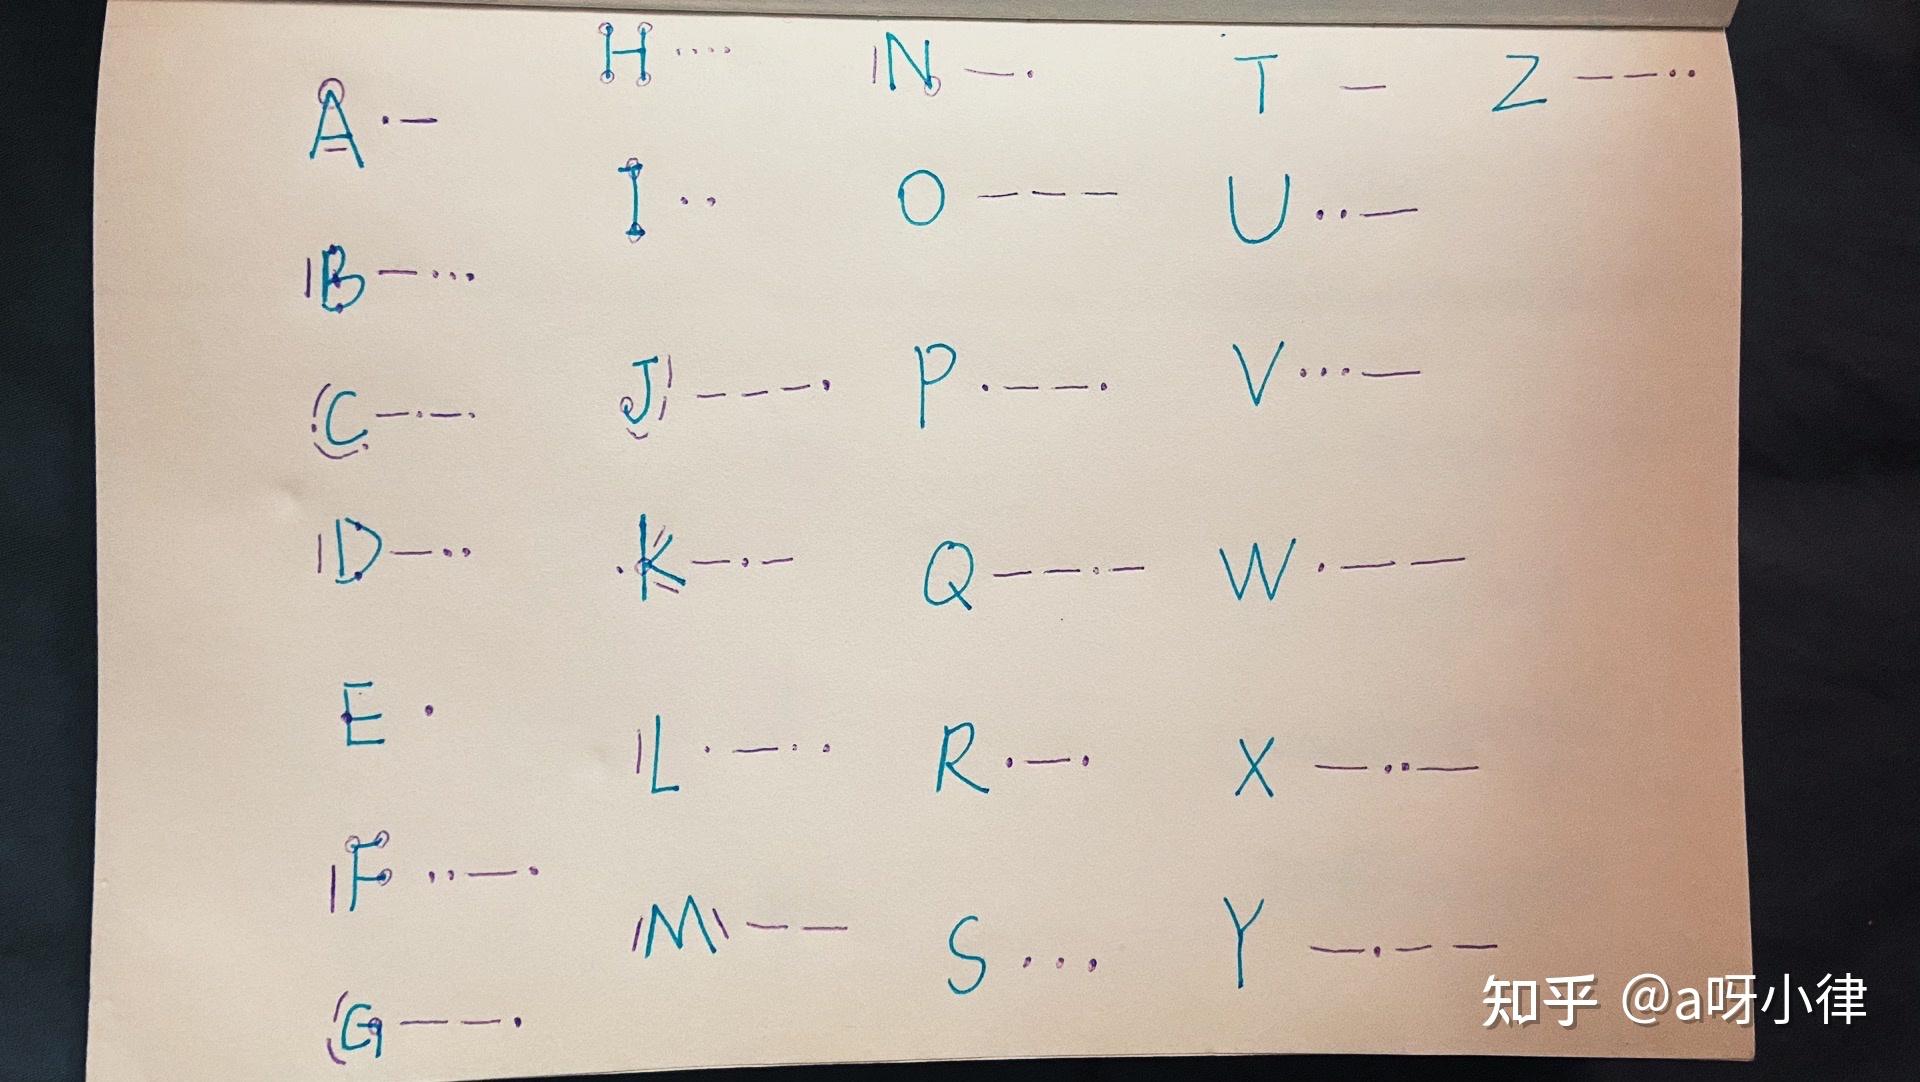 A ·—
B —···
C —·—·
D —··
E ·
F ··—·
G ——·
H ····
I ··
J ———·
K —·—
L ·—··
M ——
N —·
O ———
P ·——·
Q ——·—
R ·—·
S ···
T —
U ··—
V ···—
W ·——
X —··—
Y —·——
Z ——··
知乎 @a呀小律